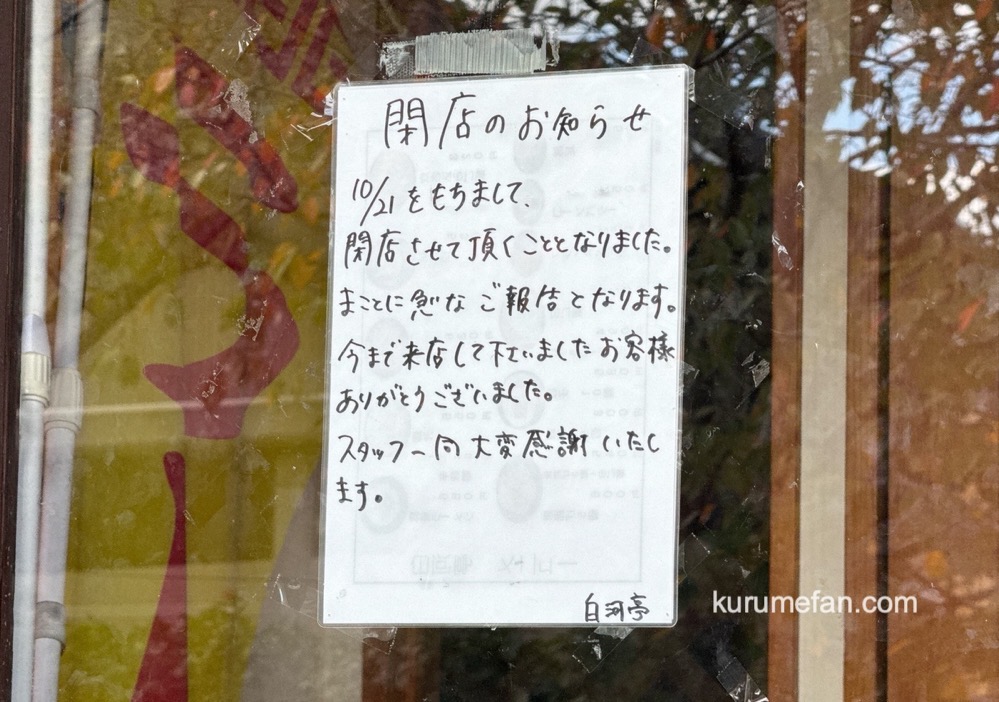 閉店のお知らせ
10/21をもちまして、
閉店させて頂くこととなりました。
まことに急なご報告となります。
今まで来店して下さいましたお客様
ありがとうございました。
スタッフ一同大変感謝いたし
ます。
白河亭
kurumefan.com